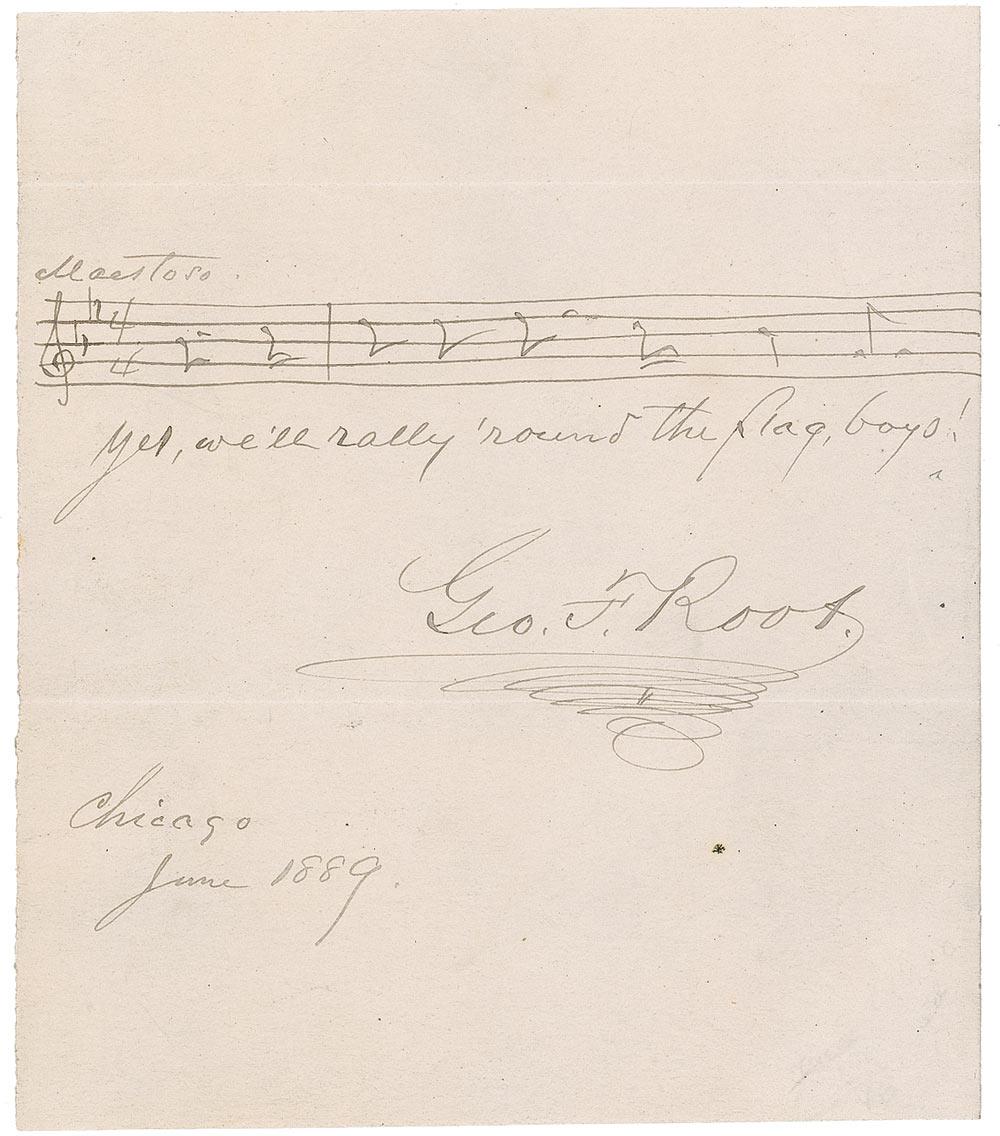 Maestoso.
4
4
Yes, we'll rally 'round the flag, boys!
Geo. F. Root.
Chicago
June 1889.